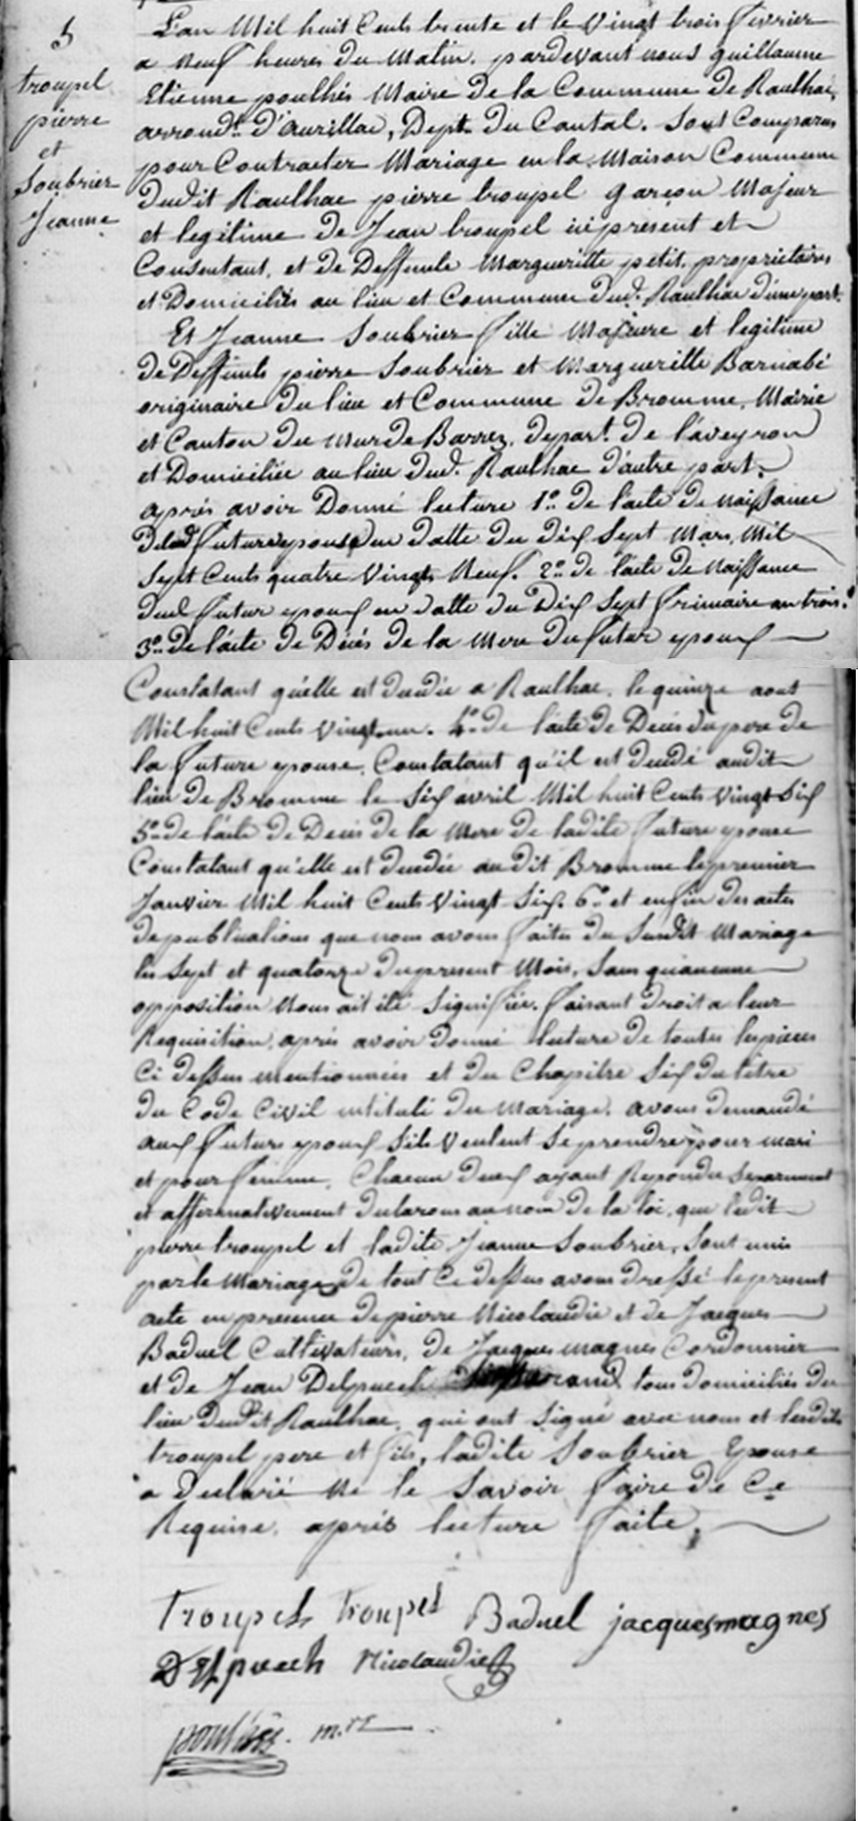 5
troupel
pierre
et
Soubrier
Jeanne
L'an Mil huit Cents trente et le Vingt trois fevrier
a neuf heures du Matin. pardevant nous guillaume
Etienne poulhés Maire de la Commune de Raulhac,
arrondt. d'aurillac, Dept. du Cantal. Sont Comparus
pour Contracter Mariage en la Maison Commune
dudit Raulhac pierre troupel garçon Majeur
et legitime de Jean troupel ici present et
Consentant, et de Deffunte Margueritte petit, proprietaires
et Domiciliés au lieu et Commune dud. Raulhac d'une part.
Et Jeanne Soubrier fille Majeure et legitime
de Deffunts pierre Soubrier et Margueritte Barnabé
originaire du lieu et Commune de Bromme, Mairie
et Canton du Mur de Barrez, depart. de l'aveyron
et Domiciliée au lieu dud. Raulhac d'autre part.
aprés avoir Donné lecture 1o. de l'acte de naissance
de lad. future epouse en datte du dix Sept Mars Mil
Sept Cents quatre Vingts Neuf. 2o. de l'acte de Naissance
dud. futur epoux en datte du Dix Sept frimaire an trois.
3o. de l'acte de Décés de la Mere du futur epoux
Constatant qu'elle est decedée a Raulhac, le quinze aout
Mil huit Cents Vingt un. 4o. de l'acte de Décés du pere de
la future epouse, Constatant qu'il est decedé audit
lieu de Bromme le Six avril Mil huit Cents Vingt Six
5o. de l'acte de Decés de la Mere de ladite future epouse
Constatant qu'elle est decedée au dit Bromme le premier
Janvier Mil huit Cents Vingt Six. 6o. et enfin des actes
de publications que nous avons faites du Susdit Mariage
les Sept et quatorze du present Mois, Sans qu'aucune
opposition Nous ait été Signifiée. faisant droit a leur
Requisition, aprés avoir donné lecture de toutes les pieces
Ci dessus mentionnées et du Chapitre Six du titre
du Code Civil intitulé du Mariage. avons demandé
aux futurs epoux S'ils Veulent Se prendre pour mari
et pour femme, Chacun d'eux ayant Repondu Separement
et affirmativement declarons au nom de la loi, que ledit
pierre troupel et ladite Jeanne Soubrier, Sont unis
par le Mariage de tout Ce dessus avons dressé le present
acte en presence de pierre Nicolaudie et de Jacques
Baduel Cultivateurs, de Jacques magnes Cordonnier
et de Jean Delpuech tous domiciliés du
lieu dudit Raulhac, qui ont Signé avec nous et lesdits
troupel pere et fils, ladite Soubrier Epouse
a Declaré Ne le Savoir faire de Ce
Requise, aprés lecture faite.
Troupel troupel Baduel jacquesmagnes
Delpuech Nicolaudie
poulhés. m.re